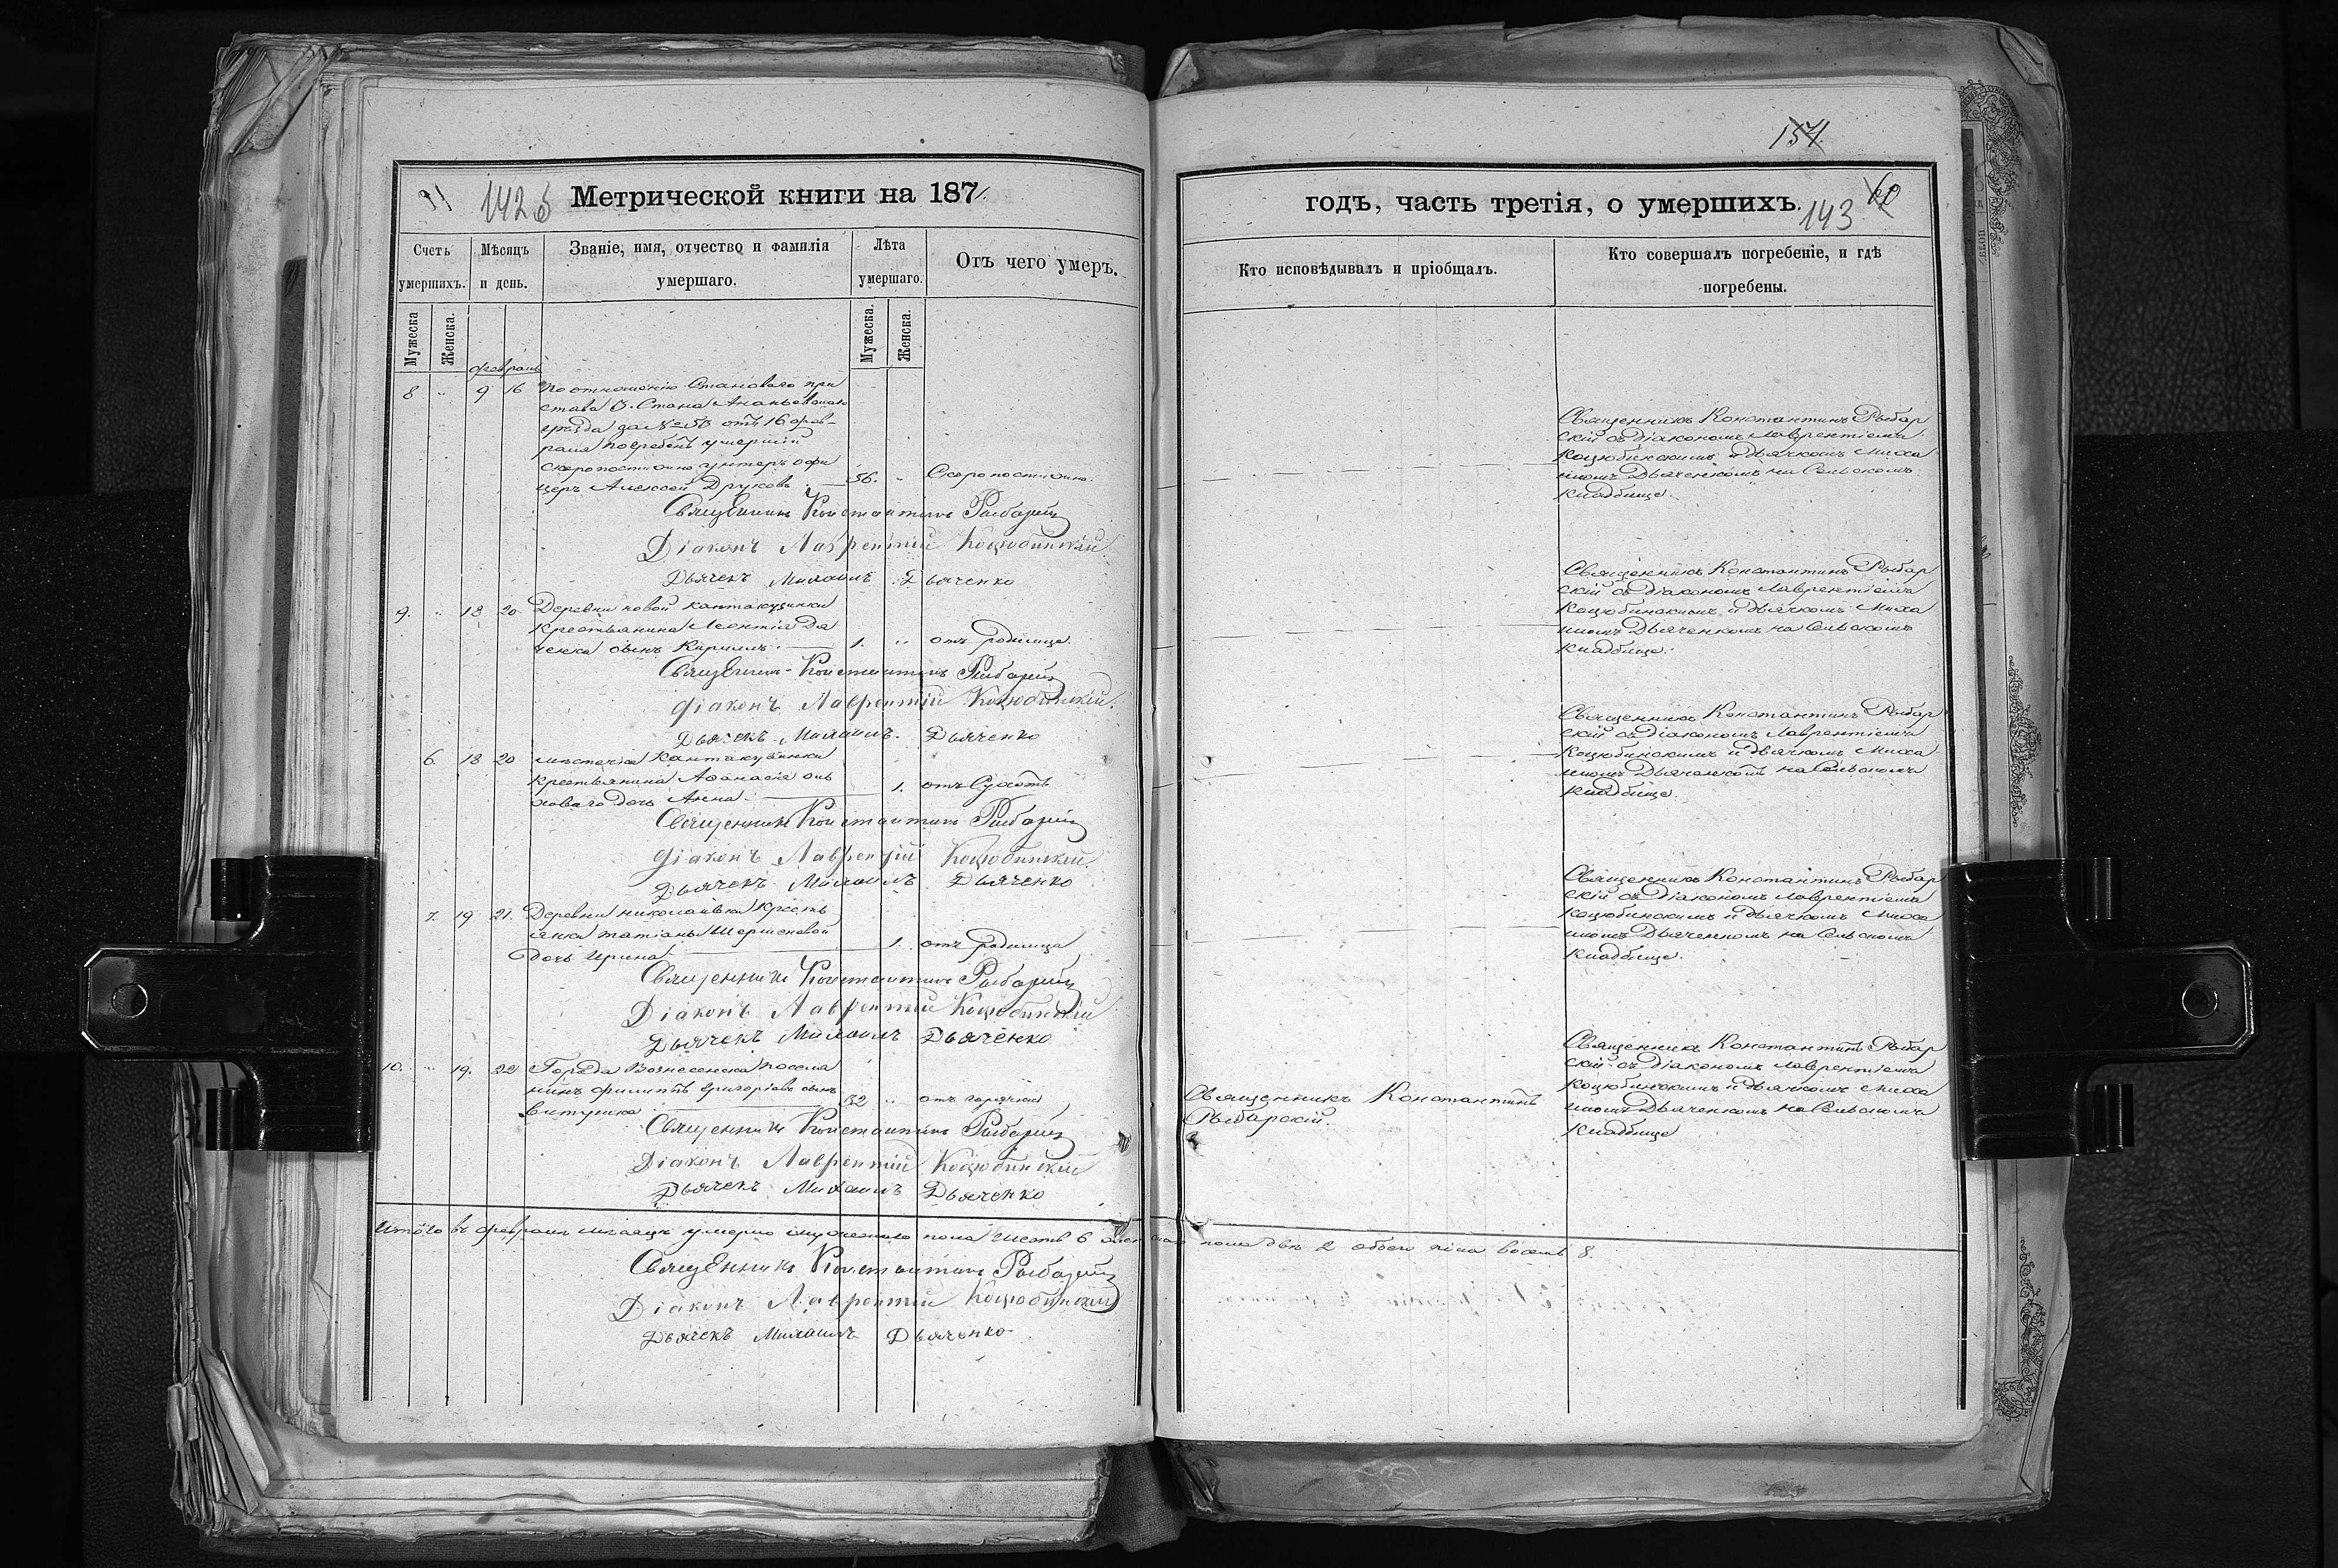 142 б
Метрической книги на 1871.
Счетъ умершихъ.
Мѣсяцъ и день.
Званіе, имя, отчество и фамилія умершаго.
Лѣта умершаго.
Отъ чего умеръ.
Мужеска
Женска.
Мужеска.
Женска.
февраль
8 „ 9 16 По отношенію Становаго при
става 3. Стана Ананьевскаго
уѣзда за № отъ 16 фев-
раля погребенъ умершій
скоропостижно унтеръ офи
церъ Алексей Друковъ. — 56. „ Скоропостижно.
Священникъ Константинъ Рыбарскій
Діаконъ Лаврентій Коцюбинскій
Дьячекъ Михаилъ Дьяченко
9. „ 18 20 Деревни новой Кантакузинки
Крестьянина Леонтія Дя
ченка сынъ Кириллъ. — 1. „ отъ родимца.
Священникъ Константинъ Рыбарскій
Діаконъ Лаврентій Коцюбинскій.
Дьячекъ Михаилъ Дьяченко
6. 18 20 мѣстечка Кантакузинки
Крестьянина Афанасія
дочь Анна. — 1. отъ Сухотъ
Священникъ Константинъ Рыбарскій
Діаконъ Лаврентій Коцюбинскій
Дьячекъ Михаилъ Дьяченко
7. 19 21. Деревни Николаевки Кресть
янки Татіаны Шершеновой
дочь Ирина. — 1. отъ родимца
Священникъ Константинъ Рыбарскій
Діаконъ Лаврентій Коцюбинскій
Дьячекъ Михаилъ Дьяченко
10. „ 19. 22 Города Вознесенска поселя
нинъ Филиппъ Григорьевъ сынъ
32 „ отъ горячки
Священникъ Константинъ Рыбарскій
Діаконъ Лаврентій Коцюбинскій
Дьячекъ Михаилъ Дьяченко
Итого въ февралѣ мѣсяцѣ умерло мужеска пола шесть 6 женска пола двѣ 2 обоего пола восемь 8.
Священникъ Константинъ Рыбарскій
Діаконъ Лаврентій Коцюбинскій
Дьячекъ Михаилъ Дьяченко
годъ, часть третія, о умершихъ.
143
60
Кто исповѣдывалъ и пріобщалъ.
Кто совершалъ погребеніе, и гдѣ погребены.
Священникъ Константинъ Рыбар
скій съ діакономъ Лаврентіемъ
Коцюбинскимъ и дьячкомъ Миха
иломъ Дьяченкомъ на Сельскомъ
кладбище.
Священникъ Константинъ Рыбар
скій съ діакономъ Лаврентіемъ
Коцюбинскимъ и дьячкомъ Миха
иломъ Дьяченкомъ на Сельскомъ
кладбище.
Священникъ Константинъ Рыбар
скій съ діакономъ Лаврентіемъ
Коцюбинскимъ и дьячкомъ Миха
иломъ Дьяченкомъ на Сельскомъ
кладбище.
Священникъ Константинъ Рыбар
скій съ діакономъ Лаврентіемъ
Коцюбинскимъ и дьячкомъ Миха
иломъ Дьяченкомъ на Сельскомъ
кладбище.
Священникъ Константинъ
Рыбарскій.
Священникъ Константинъ Рыбар
скій съ діакономъ Лаврентіемъ
Коцюбинскимъ и дьячкомъ Миха
иломъ Дьяченкомъ на Сельскомъ
кладбище